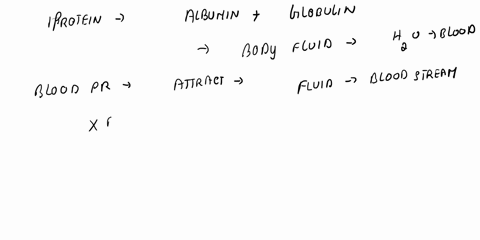 PROTEIN → ALBUMIN + GLOBULIN
→ BODY FLUID → H2O → BLOOD
BLOOD PR → ATTRACT → FLUID → BLOOD STREAM
X